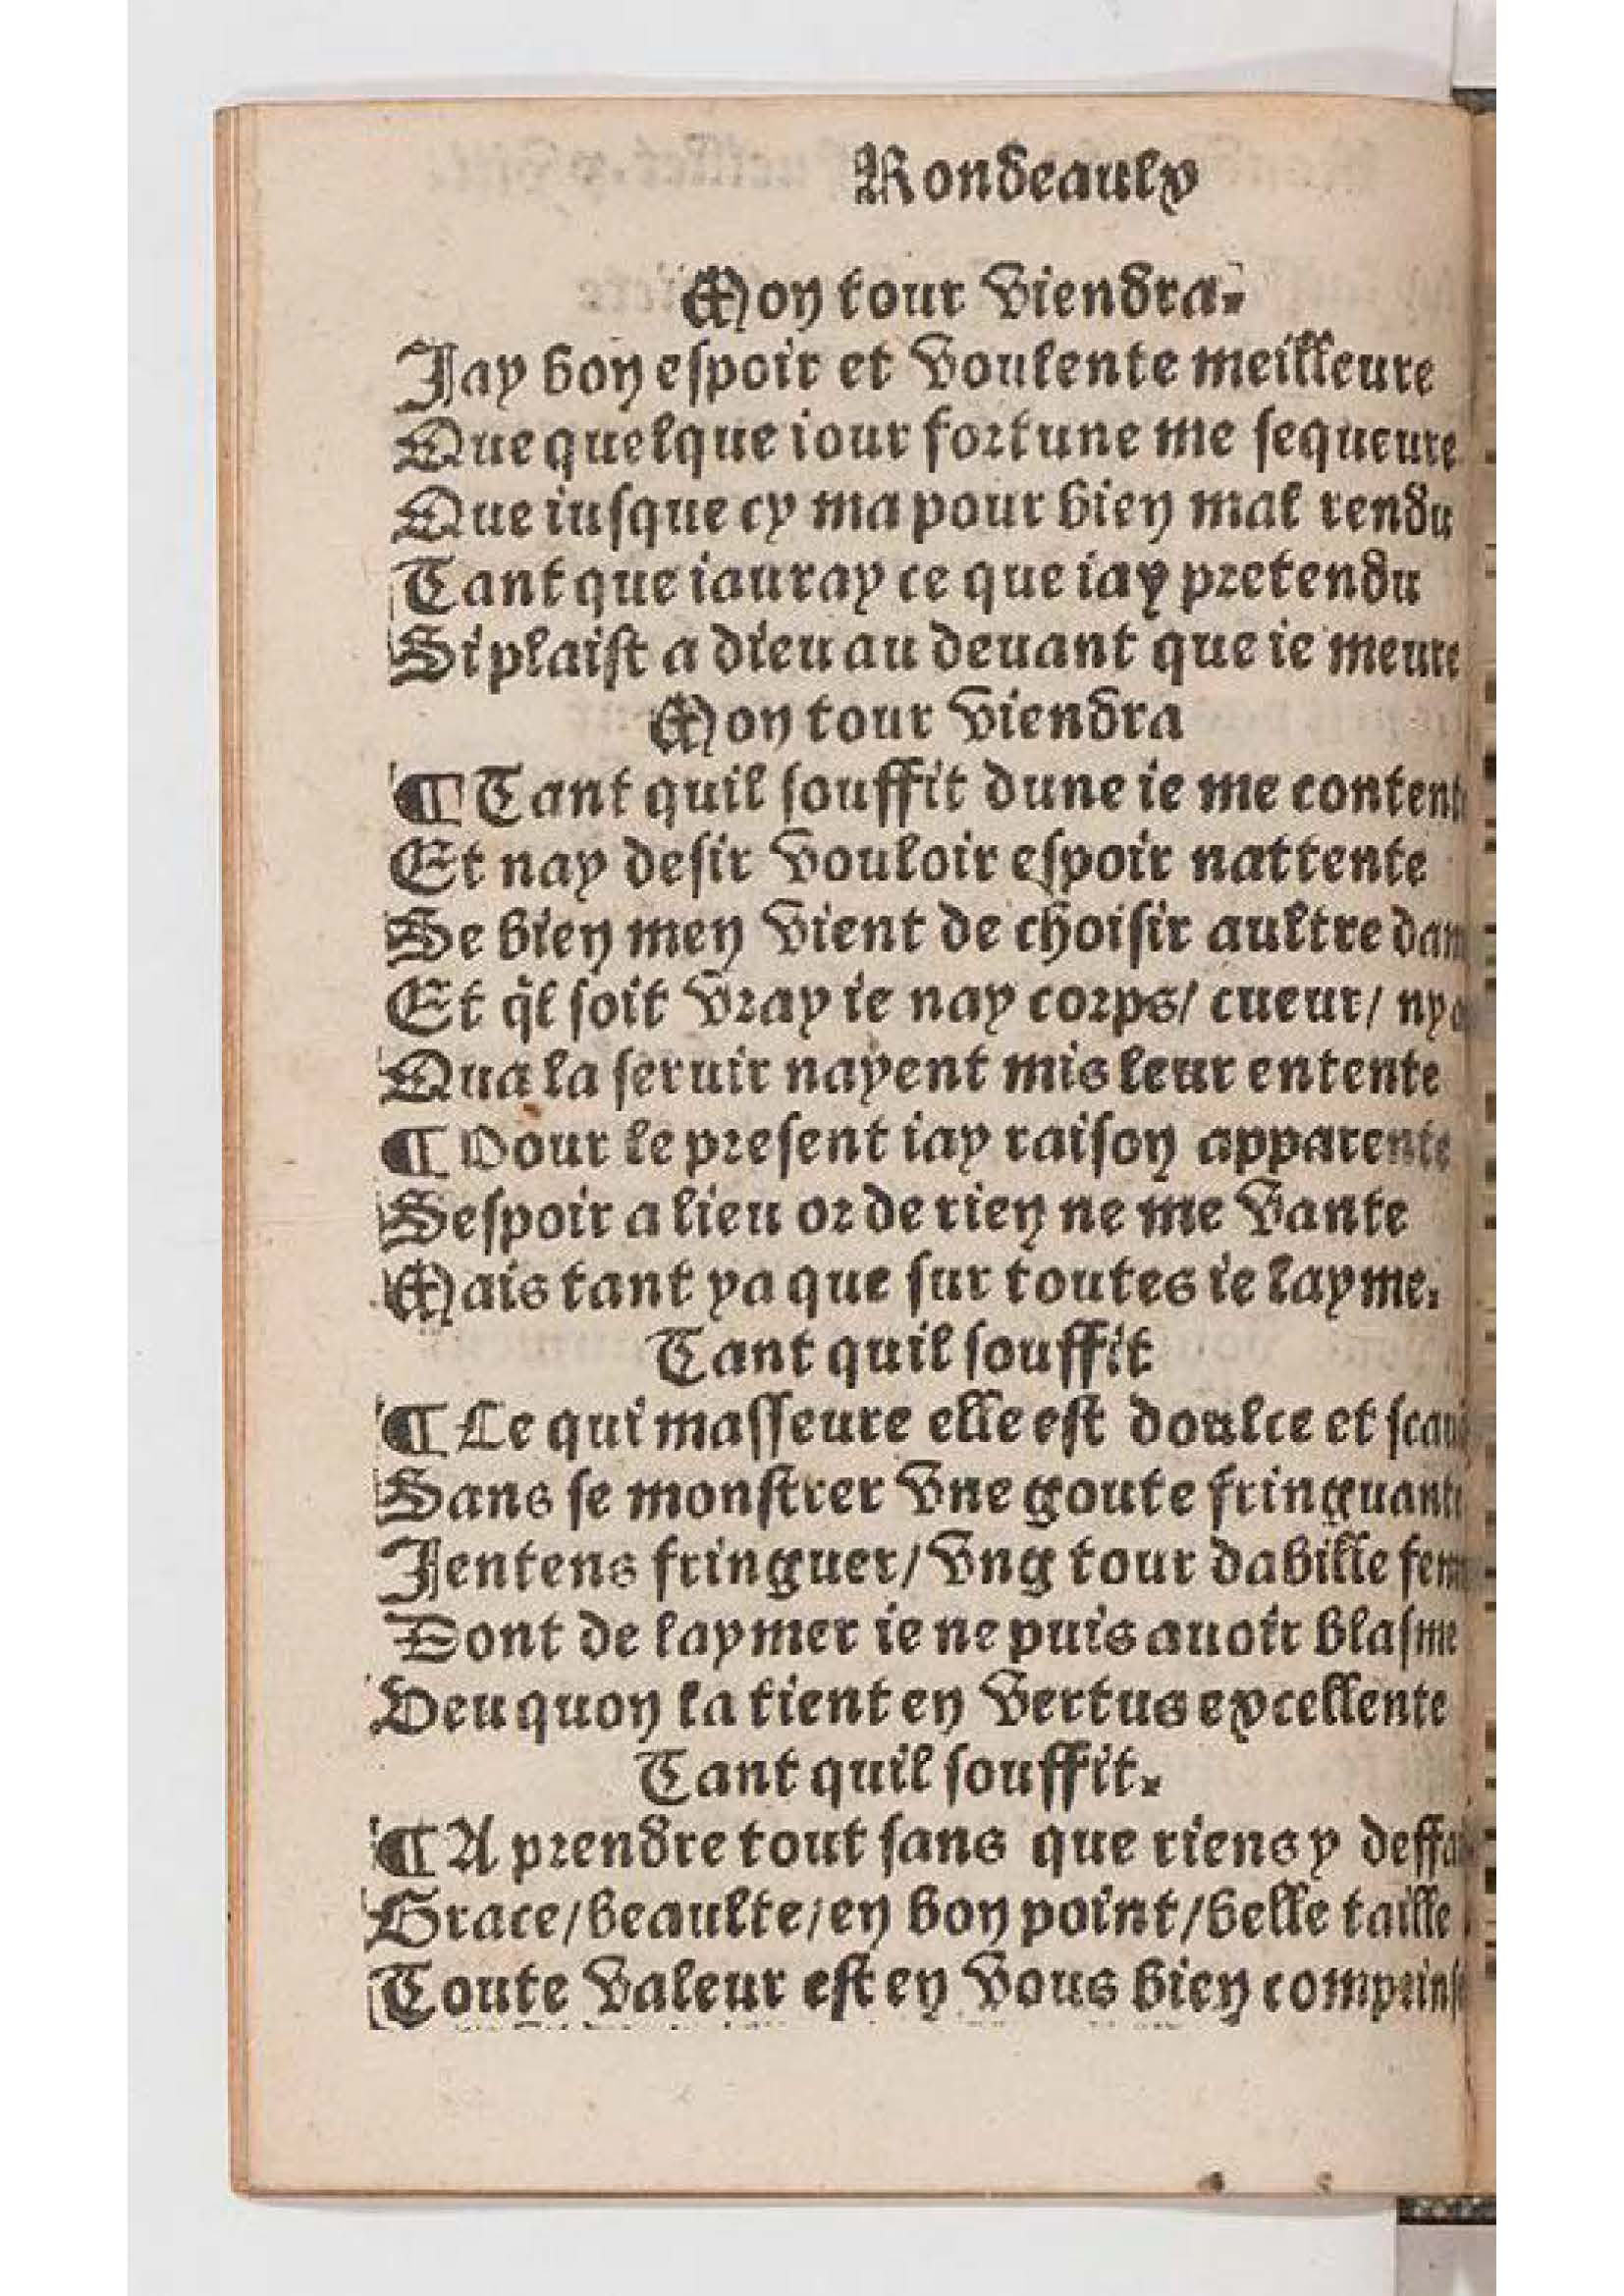 Rondeaulx
Mon tour viendra.
Jay bon espoir et voulente meilleure
Que quelque iour fortune me sequeure
Que iusque cy ma pour bien mal rendu
Tant que iauray ce que iay pretendu
Si plaist a dieu au deuant que ie meure
Mon tour viendra
¶ Tant quil souffit dune ie me contente
Et nay desir vouloir espoir nattente
Se bien men vient de choisir aultre
Et q̃l soit vray ie nay corps/ cueur/ ny
Qua la seruir nayent mis leur entente
¶ Pour le present iay raison apparente
Sespoir a lieu or de rien ne me vante
Mais tant ya que sur toutes ie layme.
Tant quil souffit
¶ Ce qui masseure elle est doulce et
Sans se monstrer vne goute fringuante
Jentens fringuer/ vng tour dabille
Dont de laymer ie ne puis auoir blasme
Veu quon la tient en vertus excellente
Tant quil souffit.
¶ A prendre tout sans que riens y
Grace/ beaulte/ en bon point/ belle taille
Toute valeur est en vous bien comprinse